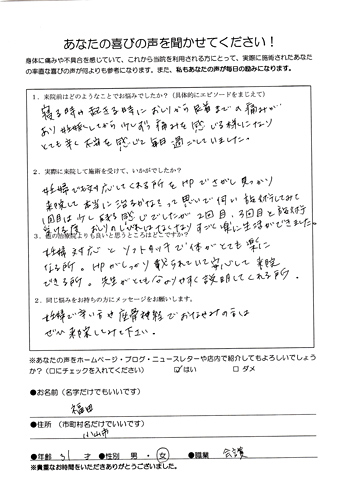 あなたの喜びの声を聞かせてください！
身体に痛みや不具合を感じていて、これから当院を利用される方にとって、実際に施術されたあなた
の率直な喜びの声が何よりも参考になります。また、私もあなたの声が毎日の励みになります。
1．来院前はどのようなことでお悩みでしたか？（具体的にエピソードをまじえて）
寝る時や起きる時におしりから足首までの痛みが
あり妊娠してから少しずつ痛みを感じる様になり
とても辛く不安を感じて毎日過ごしていました。
2．実際に来院して施術を受けて、いかがでしたか？
妊婦でも対応してくれる所をHPでさがし見つかり
来院して本当に治るかなぁって思いで伺い施術してみて
1回目は少し残る感じでしたが2回目、3回目と施術
受ける度おしりのしびれはなくなりすごく楽に生活ができました。
3．他の治療院よりも良いと思うところはどこですか？
妊婦対応とソフトタッチで体がとても楽に
なる所。HPがしっかり載られていて安心して来院
できる所。先生がとてもわかりやすく説明してくれる所。
2．同じ悩みをお持ちの方にメッセージをお願いします。
妊婦で辛い方や坐骨神経でおなやみの方は
ぜひ来院してみて下さい。
※あなたの声をホームページ・ブログ・ニュースレターや店内で紹介してもよろしいでしょう
か？（□にチェックを入れてください） ☑はい □ダメ
●お名前（名字だけでもいいです）
福田
●住所 （市町村名だけでいいです）
小山市
●年齢 31 才 ●性別 男・女 ●職業 会社員
※貴重なお時間をいただきありがとうございました。